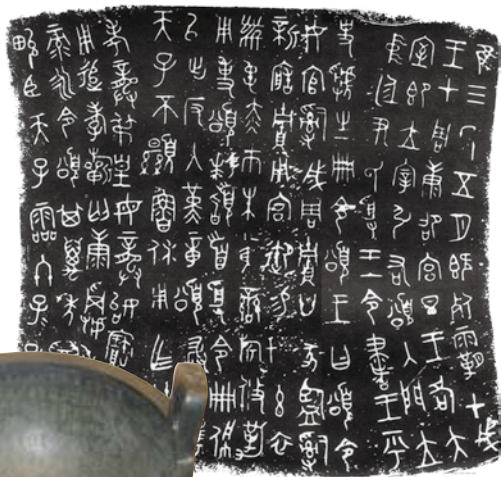 隹三年五月既死霸甲戌
王才周康卲宮旦王各大
室即立宰引右頌入門立
中廷尹氏受王令書王乎
史虢生冊令頌王曰頌令
女官𤔲成周貯廿家監𤔲
新造貯用宮御易女玄衣
黹屯赤巿朱黃䜌旂攸勒
用事頌拜𩒨首受令冊佩
以出反入堇章頌
天子不顯魯休用乍
考龏弔皇母龏姒寶
用追孝𣄨匄康𩁹屯
彔永令頌其萬
畯臣天子霝冬子